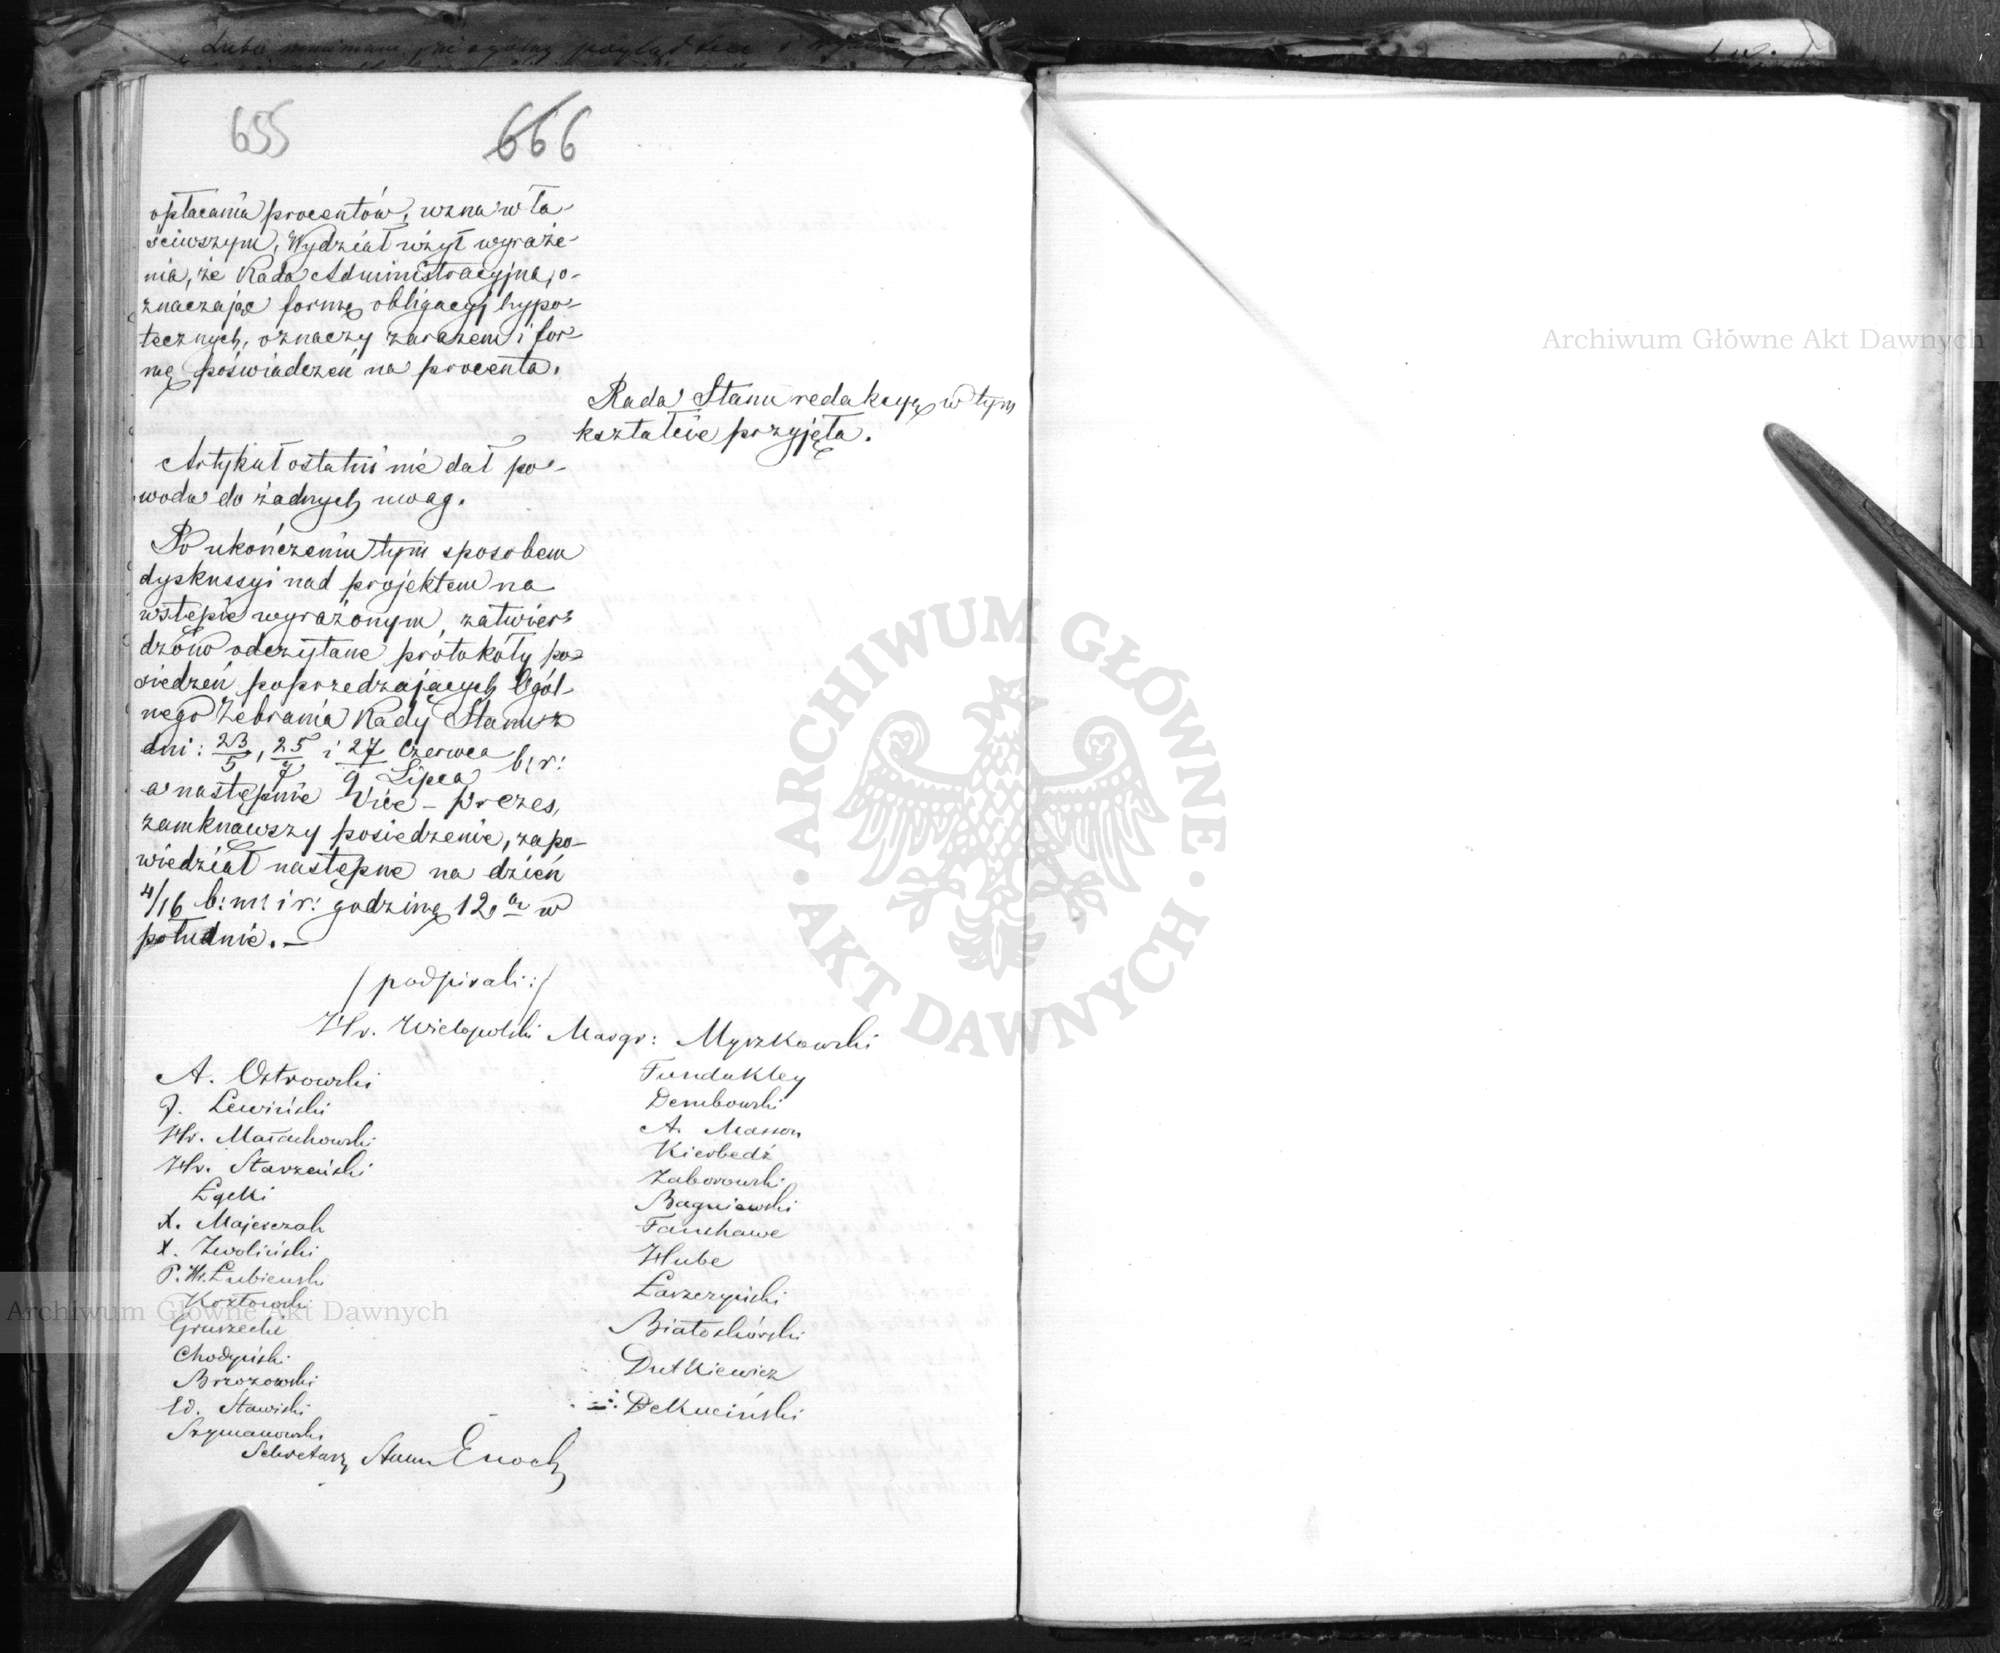 655
666
opłacania procentów, uznawła-
ściwszym, Wydział użył wyraże-
nia, że Rada Administracyjna, o-
znaczając formę obligacyj hypo-
tecznych, oznaczy zarazem i for-
mę poświadczeń na procenta.
Rada Stanu redakcyę w tym
kształcie przyjęła.
Artykuł ostatni nie dał po-
wodu do żadnych uwag.
Po ukończeniu tym sposobem
dyskussyi nad projektem na
wstępie wyrażonym, zatwier-
dzono odczytane protokóły po-
siedzeń poprzedzających Ogól-
nego Zebrania Rady Stanu z
dni: 23/5, 25/7 i 27 Czerwca/9 Lipca b: r:
a następnie Vice-Prezes,
zamknąwszy posiedzenie, zapo-
wiedział następne na dzień
4/16 b: m: i r: godzinę 12ą w
południe.—
/podpisali:/
Hr. Wielopolski Margr: Myszkowski
A. Ostrowski
J. Lewiński
Hr. Małachowski
Hr. Starzeński
Łęcki
X. Majerczak
X. Zwoliński
P. Hr. Łubieński
Kozłowski
Gruszecki
Chodyński
Brzozowski
Ed. Stawiski
Szymanowski
Fundukley
Dembowski
A. Masson
Kierbedź
Zaborowski
Bagniewski
Fanshawe
Hube
Łaszczyński
Białoskórski
Dutkiewicz
Dekuciński
Sekretarz Stanu Enoch
Archiwum Główne Akt Dawnych
ARCHIWUM GŁÓWNE
AKT DAWNYCH
Archiwum Główne Akt Dawnych